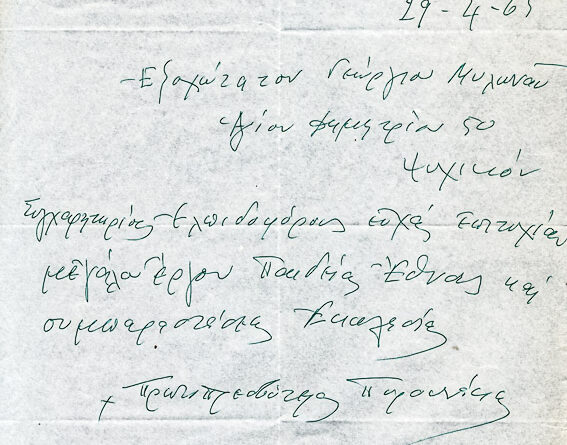 29-4-65
- Εξοχώτατον Γεώργιον Μυλωνάν
Αγίου Δημητρίου 50
Ψυχικόν
Συγχαρητηρίους Ελπιδοφόρους ευχάς επιτυχίαν
μεγάλου έργου Παιδείας Έθνους και
συμπαραστάσεως Εκκλησίας
+ Πρωτοπρεσβύτερος